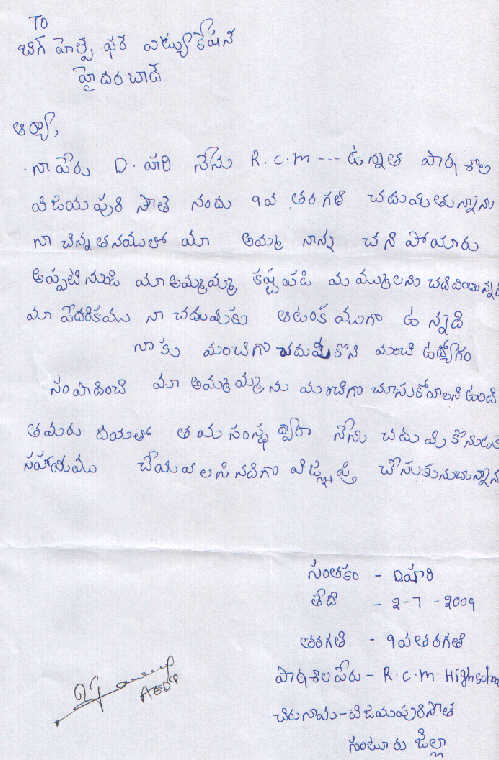 To
బిగ్ హెల్ప్ ఫర్ ఎడ్యుకేషన్
హైదరాబాద్
ఆర్యా,
నా పేరు D. హరి నేను R.C.M --- ఉన్నత పాఠశాల
విజయపురి సౌత్ నందు 9వ తరగతి చదువుతున్నాను
నా చిన్నతనములో మా అమ్మ నాన్న చనిపోయారు
అప్పటినుండి మా అమ్మమ్మ కష్టపడి మమ్ములను చదివించుచున్నది
మా పేదరికము నా చదువుకు ఆటంకముగా ఉన్నది
నాకు మంచిగా చదువుకొని మంచి ఉద్యోగం
సంపాదించి మా అమ్మమ్మను మంచిగా చూసుకోవాలని ఉంది
తమరు దయతో తమ సంస్థ ద్వారా నేను చదువుకొనుటకు
సహాయము చేయవలసినదిగా విజ్ఞప్తి చేసుకునుచున్నాను
సంతకం - D హరి
తేది - 2-7-2009
తరగతి - 9వ తరగతి
పాఠశాల పేరు - R.C.M High
చిరునామా - విజయపురి సౌత్
గుంటూరు జిల్లా